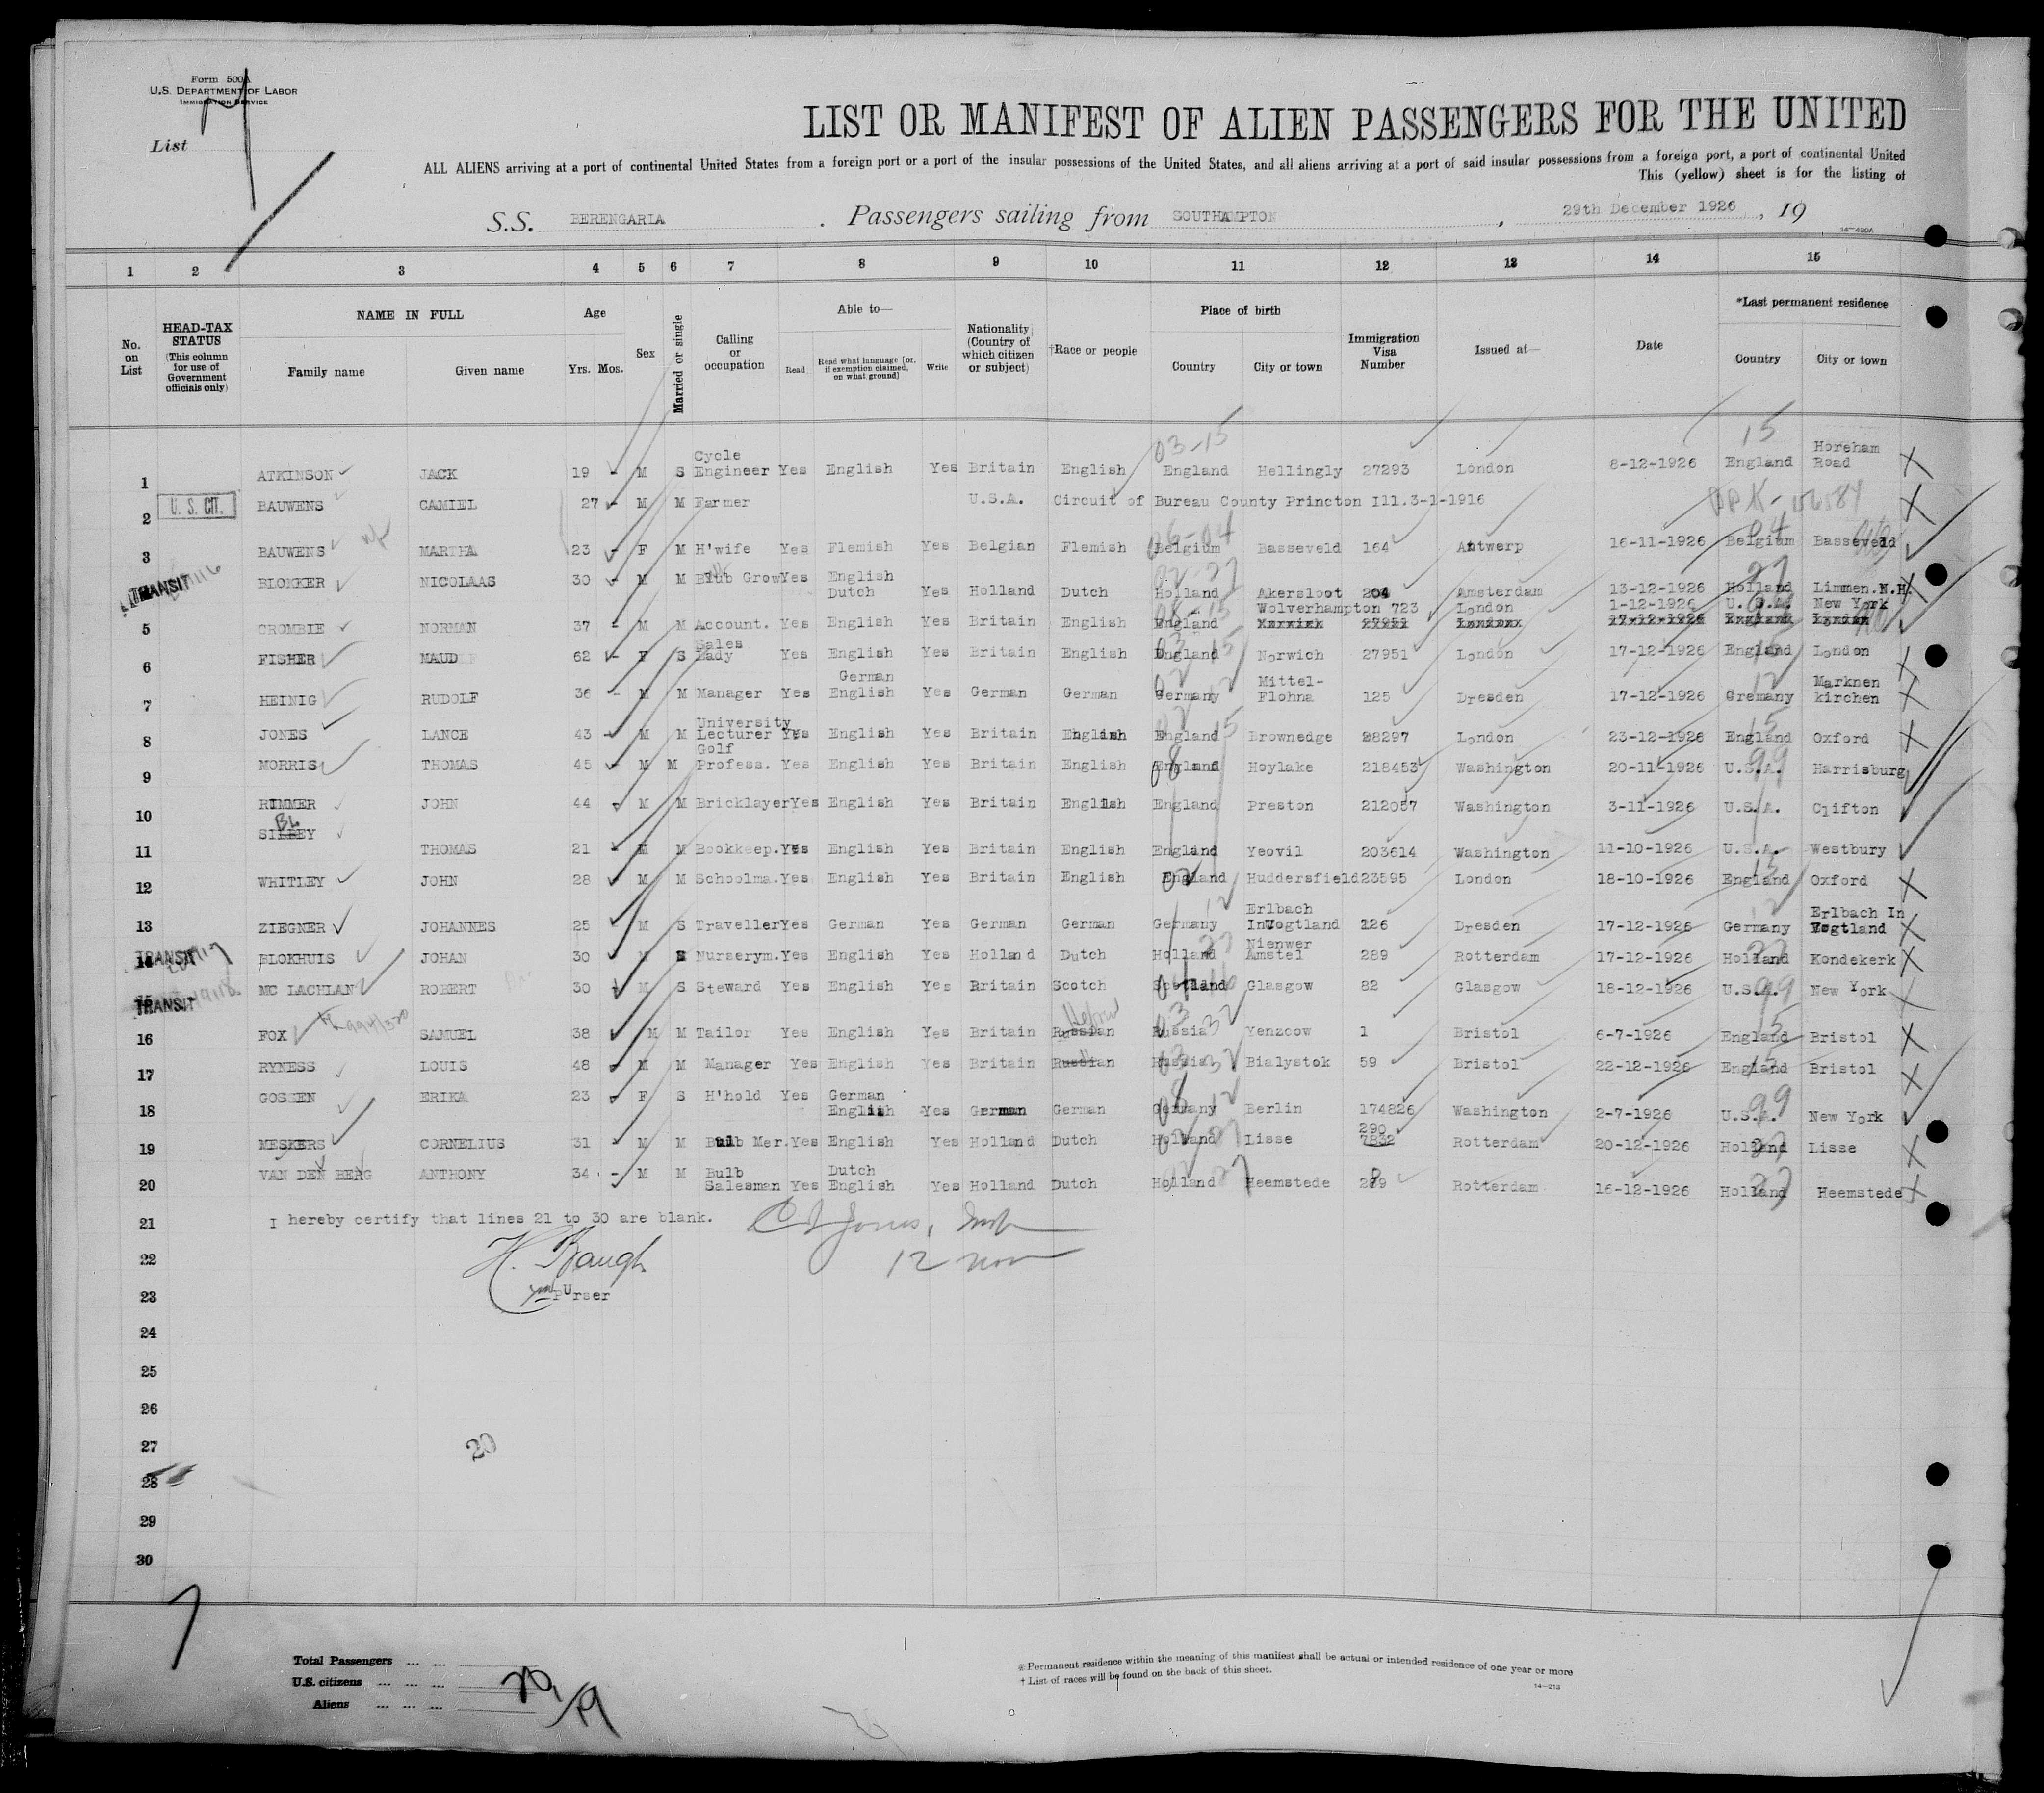 Form 500A
U.S. DEPARTMENT OF LABOR
IMMIGRATION SERVICE
List
LIST OR MANIFEST OF ALIEN PASSENGERS FOR THE UNITED
ALL ALIENS arriving at a port of continental United States from a foreign port or a port of the insular possessions of the United States, and all aliens arriving at a port of said insular possessions from a foreign port, a port of continental United
This (yellow) sheet is for the listing of
S.S. BERENGARIA . Passengers sailing from SOUTHAMPTON , 29th December 1926 , 19
14—490A
1 2 3 4 5 6 7 8 9 10 11 12 13 14 15
No. on List
HEAD-TAX STATUS (This column for use of Government officials only)
NAME IN FULL
Family name Given name
Age
Yrs. Mos.
Sex
Married or single
Calling or occupation
Able to—
Read Read what language [or, if exemption claimed, on what ground] Write
Nationality (Country of which citizen or subject)
†Race or people
Place of birth
Country City or town
Immigration Visa Number
Issued at—
Date
*Last permanent residence
Country City or town
03-15 15
1 ATKINSON JACK 19 - M S Cycle Engineer Yes English Yes Britain English England Hellingly 27293 London 8-12-1926 England Horeham Road X
2 U. S. CIT. BAUWENS CAMIEL 27 - M M Farmer U.S.A. Circuit of Bureau County Princton Ill.3-1-1916 X
3 BAUWENS MARTHA 23 - F M H'wife Yes Flemish Yes Belgian Flemish 06-04 Belgium Basseveld 164 Antwerp 16-11-1926 04 Belgium Basseveld
TRANSIT BLOKKER NICOLAAS 30 - M M Bulb Grow Yes English Dutch Yes Holland Dutch 02-27 Holland Akersloot 204 Amsterdam 13-12-1926 27 Holland Limmen.N.H. X
Wolverhampton 723 London 1-12-1926 U. S.A. New York
5 CROMBIE NORMAN 37 - M M Account. Yes English Yes Britain English England Norwich 27951 London 17-12-1926 England London
6 FISHER MAUD 62 - F S Sales Lady Yes English Yes Britain English England Norwich 27951 London 17-12-1926 England London X
7 HEINIG RUDOLF 36 - M M Manager Yes German English Yes German German Germany Mittel-Flohna 125 Dresden 17-12-1926 Gremany Marknen kirchen X
8 JONES LANCE 43 - M M University Lecturer Yes English Yes Britain English England Brownedge 28297 London 23-12-1926 England Oxford X
9 MORRIS THOMAS 45 - M M Golf Profess. Yes English Yes Britain English England Hoylake 218453 Washington 20-11-1926 U.S.A. Harrisburg
10 RIMMER JOHN 44 - M M Bricklayer Yes English Yes Britain English England Preston 212057 Washington 3-11-1926 U.S.A. Clifton
BL
11 SILBEY THOMAS 21 - M M Bookkeep. Yes English Yes Britain English England Yeovil 203614 Washington 11-10-1926 U.S.A. Westbury
12 WHITLEY JOHN 28 M M Schoolma. Yes English Yes Britain English England Huddersfield 23595 London 18-10-1926 England Oxford X
13 ZIEGNER JOHANNES 25 - M S Traveller Yes German Yes German German Germany Erlbach In Vogtland 126 Dresden 17-12-1926 Germany Erlbach In Vogtland X
14 TRANSIT BLOKHUIS JOHAN 30 M S Nurserym. Yes English Yes Holland Dutch Holland Nienwer Amstel 289 Rotterdam 17-12-1926 Holland Kondekerk X
15 TRANSIT MC LACHLAN ROBERT 30 M S Steward Yes English Yes Britain Scotch Scotland Glasgow 82 Glasgow 18-12-1926 U.S.A. New York
16 FOX SAMUEL 38 M M Tailor Yes English Yes Britain Russian Hebrew Russia Yenzcow 1 Bristol 6-7-1926 England Bristol X
17 RYNESS LOUIS 48 M M Manager Yes English Yes Britain Russian Russia Bialystok 59 Bristol 22-12-1926 England Bristol X
18 GOSSEN ERIKA 23 F S H'hold Yes German English Yes German German Germany Berlin 174826 Washington 2-7-1926 U.S.A. New York
290
19 MESKERS CORNELIUS 31 - M M Bulb Mer. Yes English Yes Holland Dutch Holland Lisse 7832 Rotterdam 20-12-1926 Holland Lisse X
20 VAN DEN BERG ANTHONY 34 - M M Bulb Salesman Yes Dutch English Yes Holland Dutch Holland Heemstede 279 Rotterdam 16-12-1926 Holland Heemstede X
21 I hereby certify that lines 21 to 30 are blank.
22 H. Baugh
23 Purser
24
25
26
27 20
28
29
30
Total Passengers ... ... 20
U.S. citizens ... ... ... 1
Aliens ... ... ... 19
* Permanent residence within the meaning of this manifest shall be actual or intended residence of one year or more
† List of races will be found on the back of this sheet.
14—213